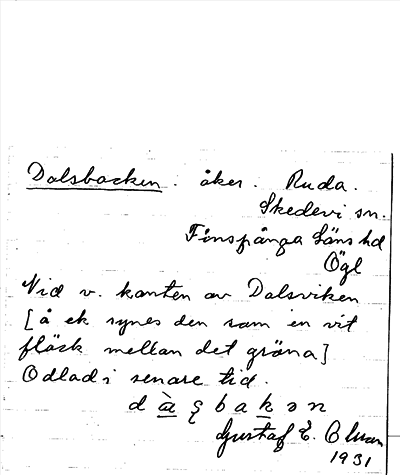 Dalsbacken. åker. Ruda.
Skedevi sn.
Finspånga Läns hd
Ögl
Vid v. kanten av Dalsviken
[å ek synes den som en vit
fläck mellan det gröna]
Odlad i senare tid.
bakən
Gustaf E. Olman
1931